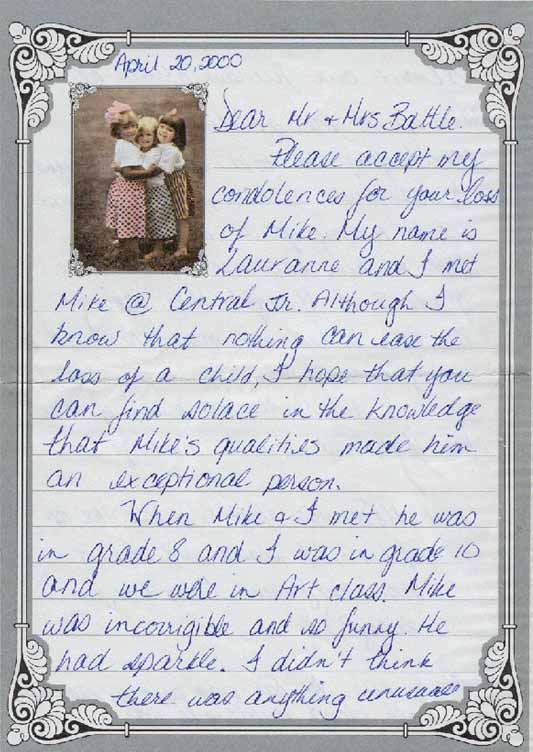 April 20, 2000
Dear Mr & Mrs Battle.
Please accept my
condolences for your loss
of Mike. My name is
Lauranne and I met
Mike @ Central Jr. Although I
know that nothing can ease the
loss of a child, I hope that you
can find solace in the knowledge
that Mike's qualities made him
an exceptional person.
When Mike & I met he was
in grade 8 and I was in grade 10
and we were in Art class. Mike
was incorrigible and so funny. He
had sparkle. I didn't think
there was anything unusual